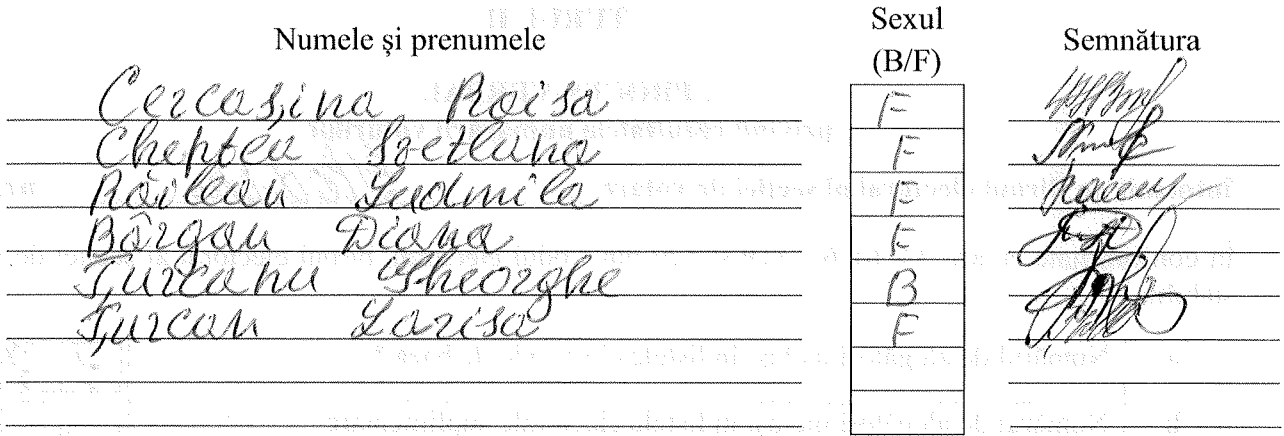 Numele și prenumele Sexul (B/F) Semnătura
Cercașina Raisa F
Cheptea Svetlana F
Răilean Ludmila F
Bârgan Diana F
Țurcanu Gheorghe B
Țurcan Larisa F